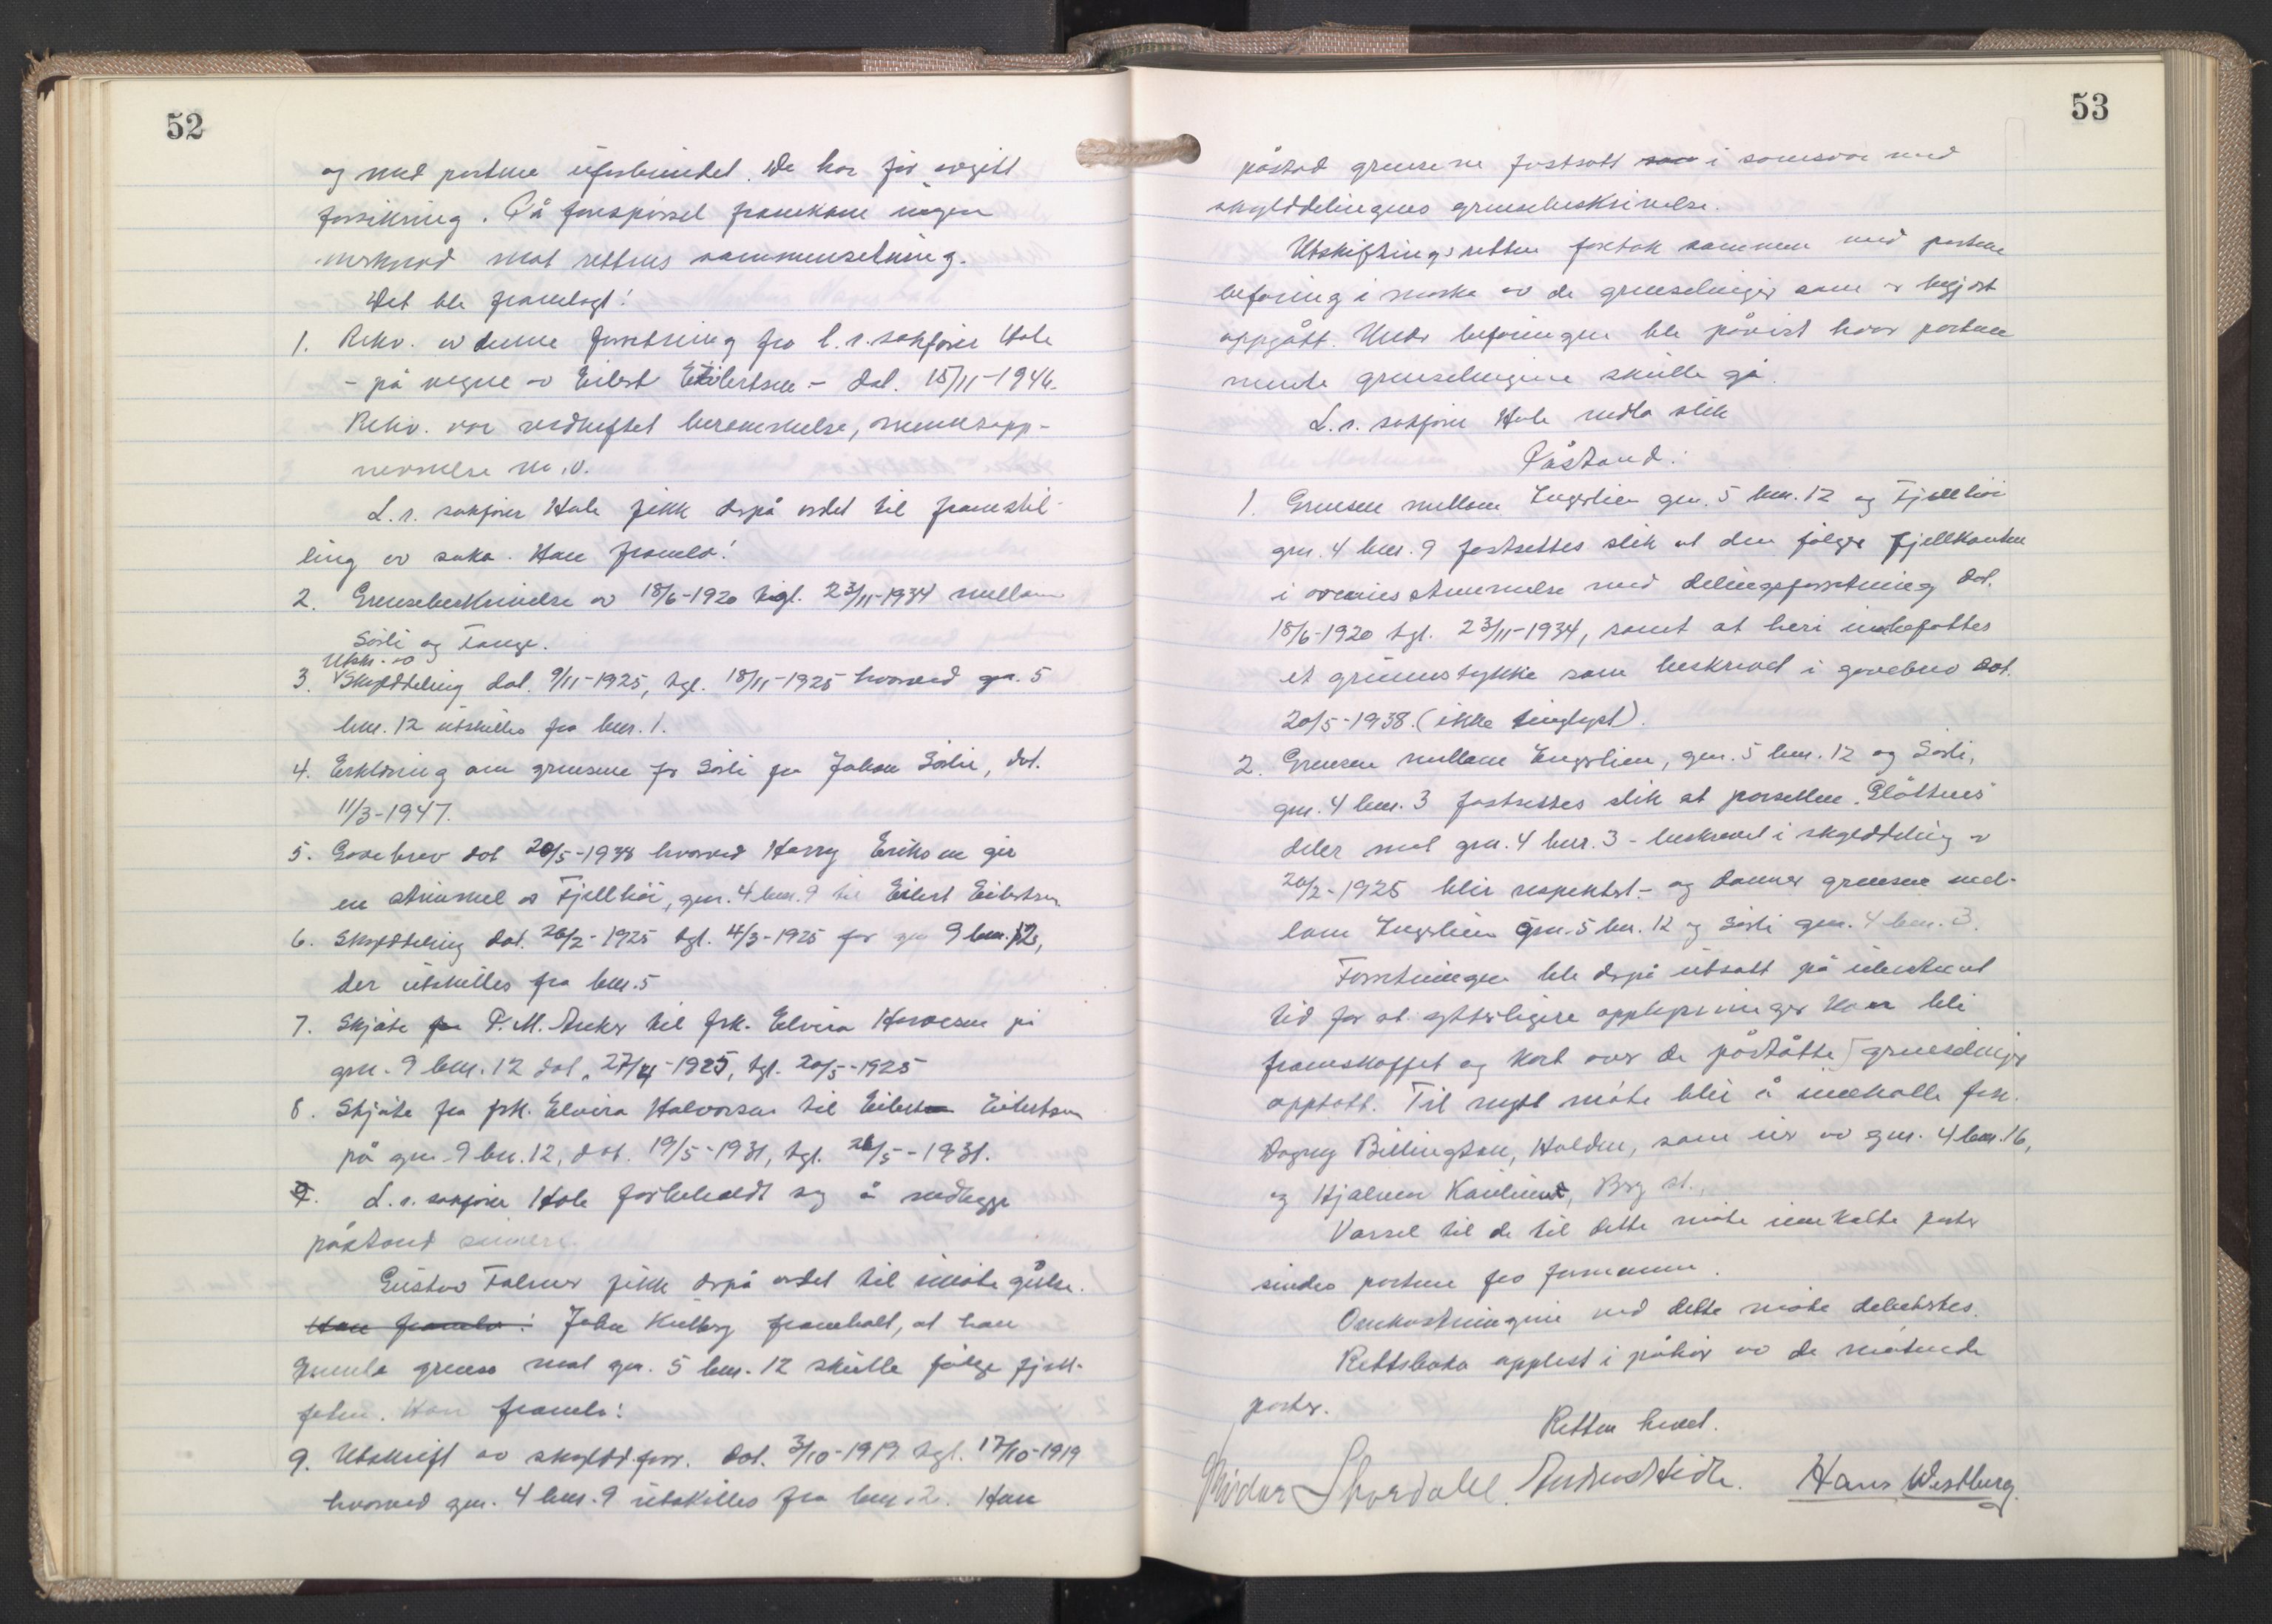 52
og med partene uforbundet. De har før avgitt
forsikring. På forespørsel framkom ingen
merknad mot rettens sammensetning.
Det ble framlagt:
1. Rekv. av denne forretning fra l.r. sakfører Hole
- på vegne av Eilert Eilertsen - dat. 15/11-1946.
Rekv. var vedheftet berammelse, mennsopp-
nevnelse m.v.
L.r. sakfører Hole fikk derpå ordet til framstil-
ling av saka. Han framla:
2. Grensebeskrivelse av 18/6-1920 tgl. 23/11-1934 mellom
Sørli og Tange.
Utskr. av
3. Skylddeling dat. 9/11-1925, tgl. 18/11-1925 hvorved gnr. 5
bnr. 12 utskilles fra bnr. 1.
4. Erklæring om grensene for Sørli fra Johan Sørlie, dat.
11/3-1947.
5. Gavebrev dat 20/5-1938 hvorved Harry Eriksen gir
en strimmel av Fjellhøi, gnr. 4 bnr. 9 til Eilert Eilertsen
6. Skylddeling dat. 26/2-1925 tgl. 4/3-1925 for gnr 9 bnr. 12,
der utskilles fra bnr. 5
7. Skjøte fra P. M. Anker til frk. Elvira Halvorsen på
gnr. 9 bnr. 12 dat. 27/4-1925, tgl. 20/5-1925
8. Skjøte fra frk. Elvira Halvorsen til Eilert Eilertsen
på gnr. 9 bnr. 12, dat. 19/5-1931, tgl. 26/5-1931.
9. L.r. sakfører Hole forbeholdt seg å nedlegge
påstand seinere.
Gustav Falmer fikk derpå ordet til imøtegåelse.
Han framla: John Kulberg framholt, at han
grense mot gnr. 5 bnr. 12 skulle følge fjell-
foten. Han framla:
9. Utskrift av skyldd.forr. dat. 3/10-1919 tgl. 17/10-1919
hvorved gnr. 4 bnr. 9 utskilles fra bnr. 2. Han
53
påstod grensene fastsatt som i samsvar med
skylddelingens grensebeskrivelse.
Utskiftingsretten foretok sammen med partene
befaring i marka av de grenselinjer som er begjært
oppgått. Under befaringen ble påvist hvor partene
mente grenselinjene skulle gå.
L.r. sakfører Hole nedla slik
Påstand:
1. Grensen mellom Engerlien gnr. 5 bnr. 12 og Fjellhøi
gnr. 4 bnr. 9 fastsettes slik at den følger fjellkanten
i overensstemmelse med delingsforretning dat.
18/6-1920 tgl. 23/11-1934, samt at heri innbefattes
et grunnstykke som beskrevet i gavebrev dat.
20/5-1938. (ikke tinglyst).
2. Grensen mellom Engerlien, gnr. 5 bnr. 12 og Sørli,
gnr. 4 bnr. 3 fastsettes slik at parsellen "Sløttenes"
deler mot gnr. 4 bnr. 3 - beskrevet i skylddeling av
26/2-1925 blir respektert - og danner grensen mel-
lom Engerlien gnr. 5 bnr. 12 og Sørli gnr. 4 bnr. 3.
Forretningen ble derpå utsatt på ubestemt
tid for at ytterligere opplysninger kan bli
framskaffet og kart over de påståtte grenselinjer
opptatt. Til nytt møte blir å innkalle frk.
Dagny Billington, Halden, som eier av gnr. 4 bnr. 16,
og Hjalmar Karlund, Berg st.
Varsel til de til dette møte innkalte parter
sendes partene fra formannen.
Omkostningene ved dette møte debiteres.
Rettsboka opplest i påhør av de møtende
parter.
Retten hevet.
Reidar Skordahl. Anders Heide. Hans Westberg.